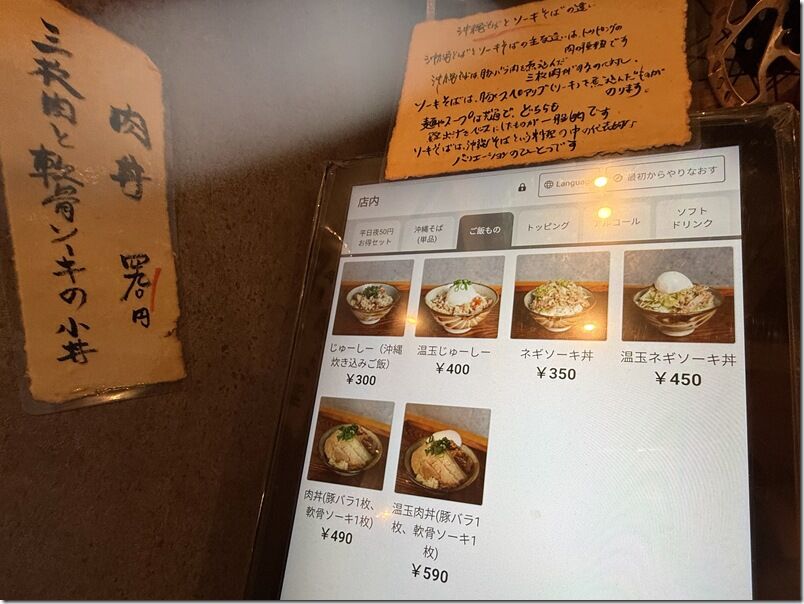 肉丼
四九〇円
三枚肉と軟骨ソーキの小丼
沖縄そばとソーキそばの違い
沖縄そばとソーキそばの主な違いは、トッピングの
肉の種類です
沖縄そばは豚バラ肉を煮込んだ
三枚肉が
ソーキそばは、豚のスペアリブ(ソーキ)を煮込んだものが
のります。
麺やスープは共通で、どちらも
ベースにしたものが一般的です
ソーキそばは、沖縄そばという料理の中の代表的な
バリエーションのひとつです
店内
Language
最初からやりなおす
平日夜50円
お得セット
沖縄そば
(単品)
ご飯もの
トッピング
アルコール
ソフト
ドリンク
じゅーしー（沖縄
炊き込みご飯）
￥300
温玉じゅーしー
￥400
ネギソーキ丼
￥350
温玉ネギソーキ丼
￥450
肉丼(豚バラ1枚、
軟骨ソーキ1枚)
￥490
温玉肉丼(豚バラ1
枚、軟骨ソーキ1
枚)
￥590